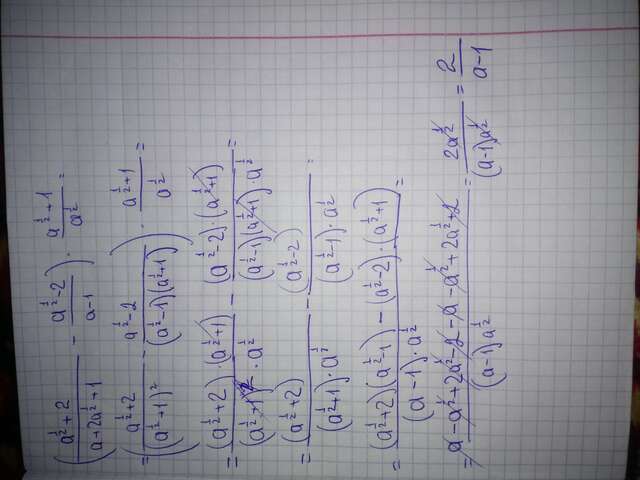 ((a^(1/2)+2)/(a+2a^(1/2)+1) − (a^(1/2)−2)/(a−1)) · (a^(1/2)+1)/a^(1/2) =
= ((a^(1/2)+2)/(a^(1/2)+1)² − (a^(1/2)−2)/((a^(1/2)−1)(a^(1/2)+1))) · (a^(1/2)+1)/a^(1/2) =
= ((a^(1/2)+2)·(a^(1/2)+1))/((a^(1/2)+1)²·a^(1/2)) − ((a^(1/2)−2)·(a^(1/2)+1))/((a^(1/2)−1)(a^(1/2)+1)·a^(1/2)) =
= (a^(1/2)+2)/((a^(1/2)+1)·a^(1/2)) − (a^(1/2)−2)/((a^(1/2)−1)·a^(1/2)) =
= ((a^(1/2)+2)(a^(1/2)−1) − (a^(1/2)−2)·(a^(1/2)+1))/((a−1)·a^(1/2)) =
= (a−a^(1/2)+2a^(1/2)−2−a−a^(1/2)+2a^(1/2)+2)/((a−1)a^(1/2)) = 2a^(1/2)/((a−1)a^(1/2)) = 2/(a−1)